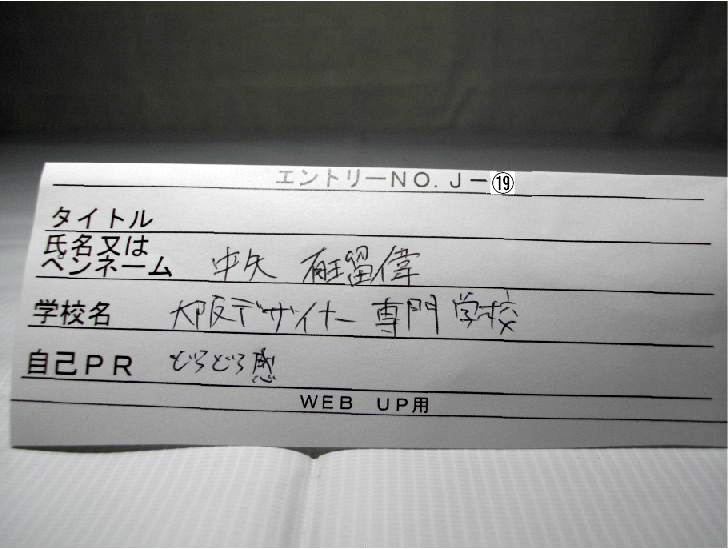 エントリーNO.J－⑲
タイトル
氏名又は
ペンネーム 中矢 留偉
学校名 大阪デザイナー専門学校
自己PR どろどろ感
WEB UP用